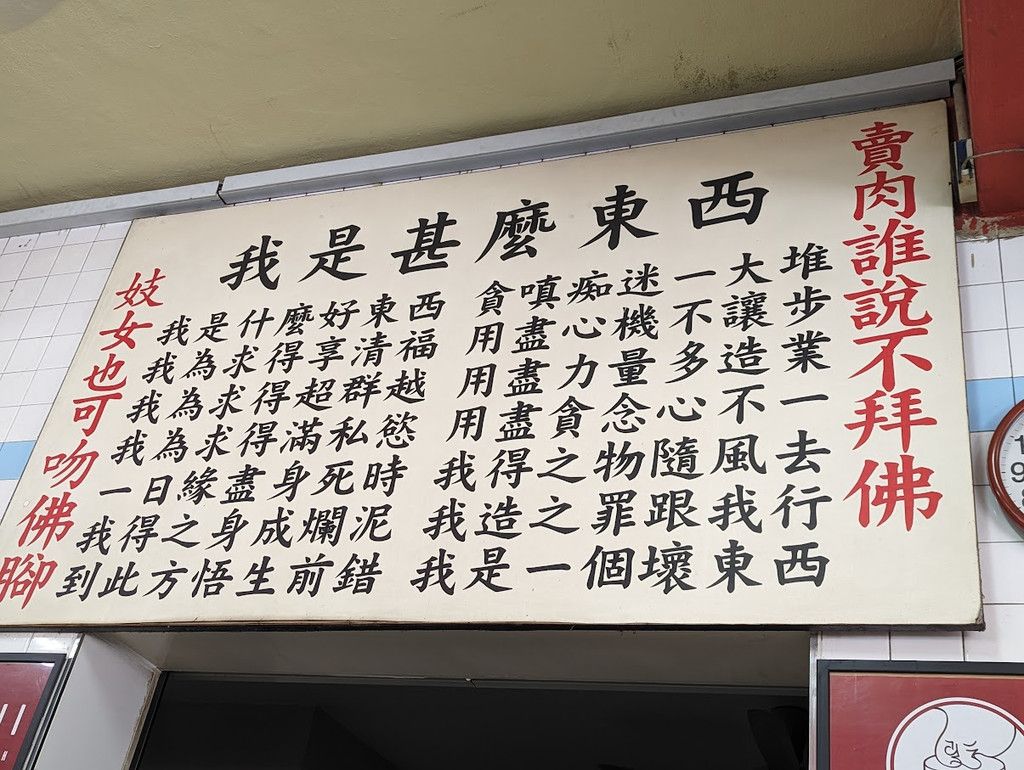 我是甚麼東西
賣肉誰說不拜佛
妓女也可吻佛腳
我是什麼好東西 貪嗔痴迷一大堆
我為求得享清福 用盡心機不讓步
我為求得超群越 用盡力量多造業
我為求得滿私慾 用盡貪念心不一
一日緣盡身死時 我得之物隨風去
我得之身成爛泥 我造之罪跟我行
到此方悟生前錯 我是一個壞東西